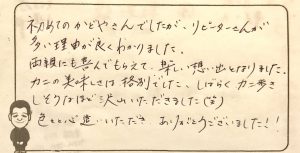 初めてのかどやさんでしたが、リピーターさんが
多い理由が良くわかりました。
両親にも喜んでもらえて、楽しい想い出となりました。
カニの美味しさは格別でした。しばらくカニ歩き
しそうなほど沢山いただきました(笑)
色々と心遣いいただき、ありがとうございました!!